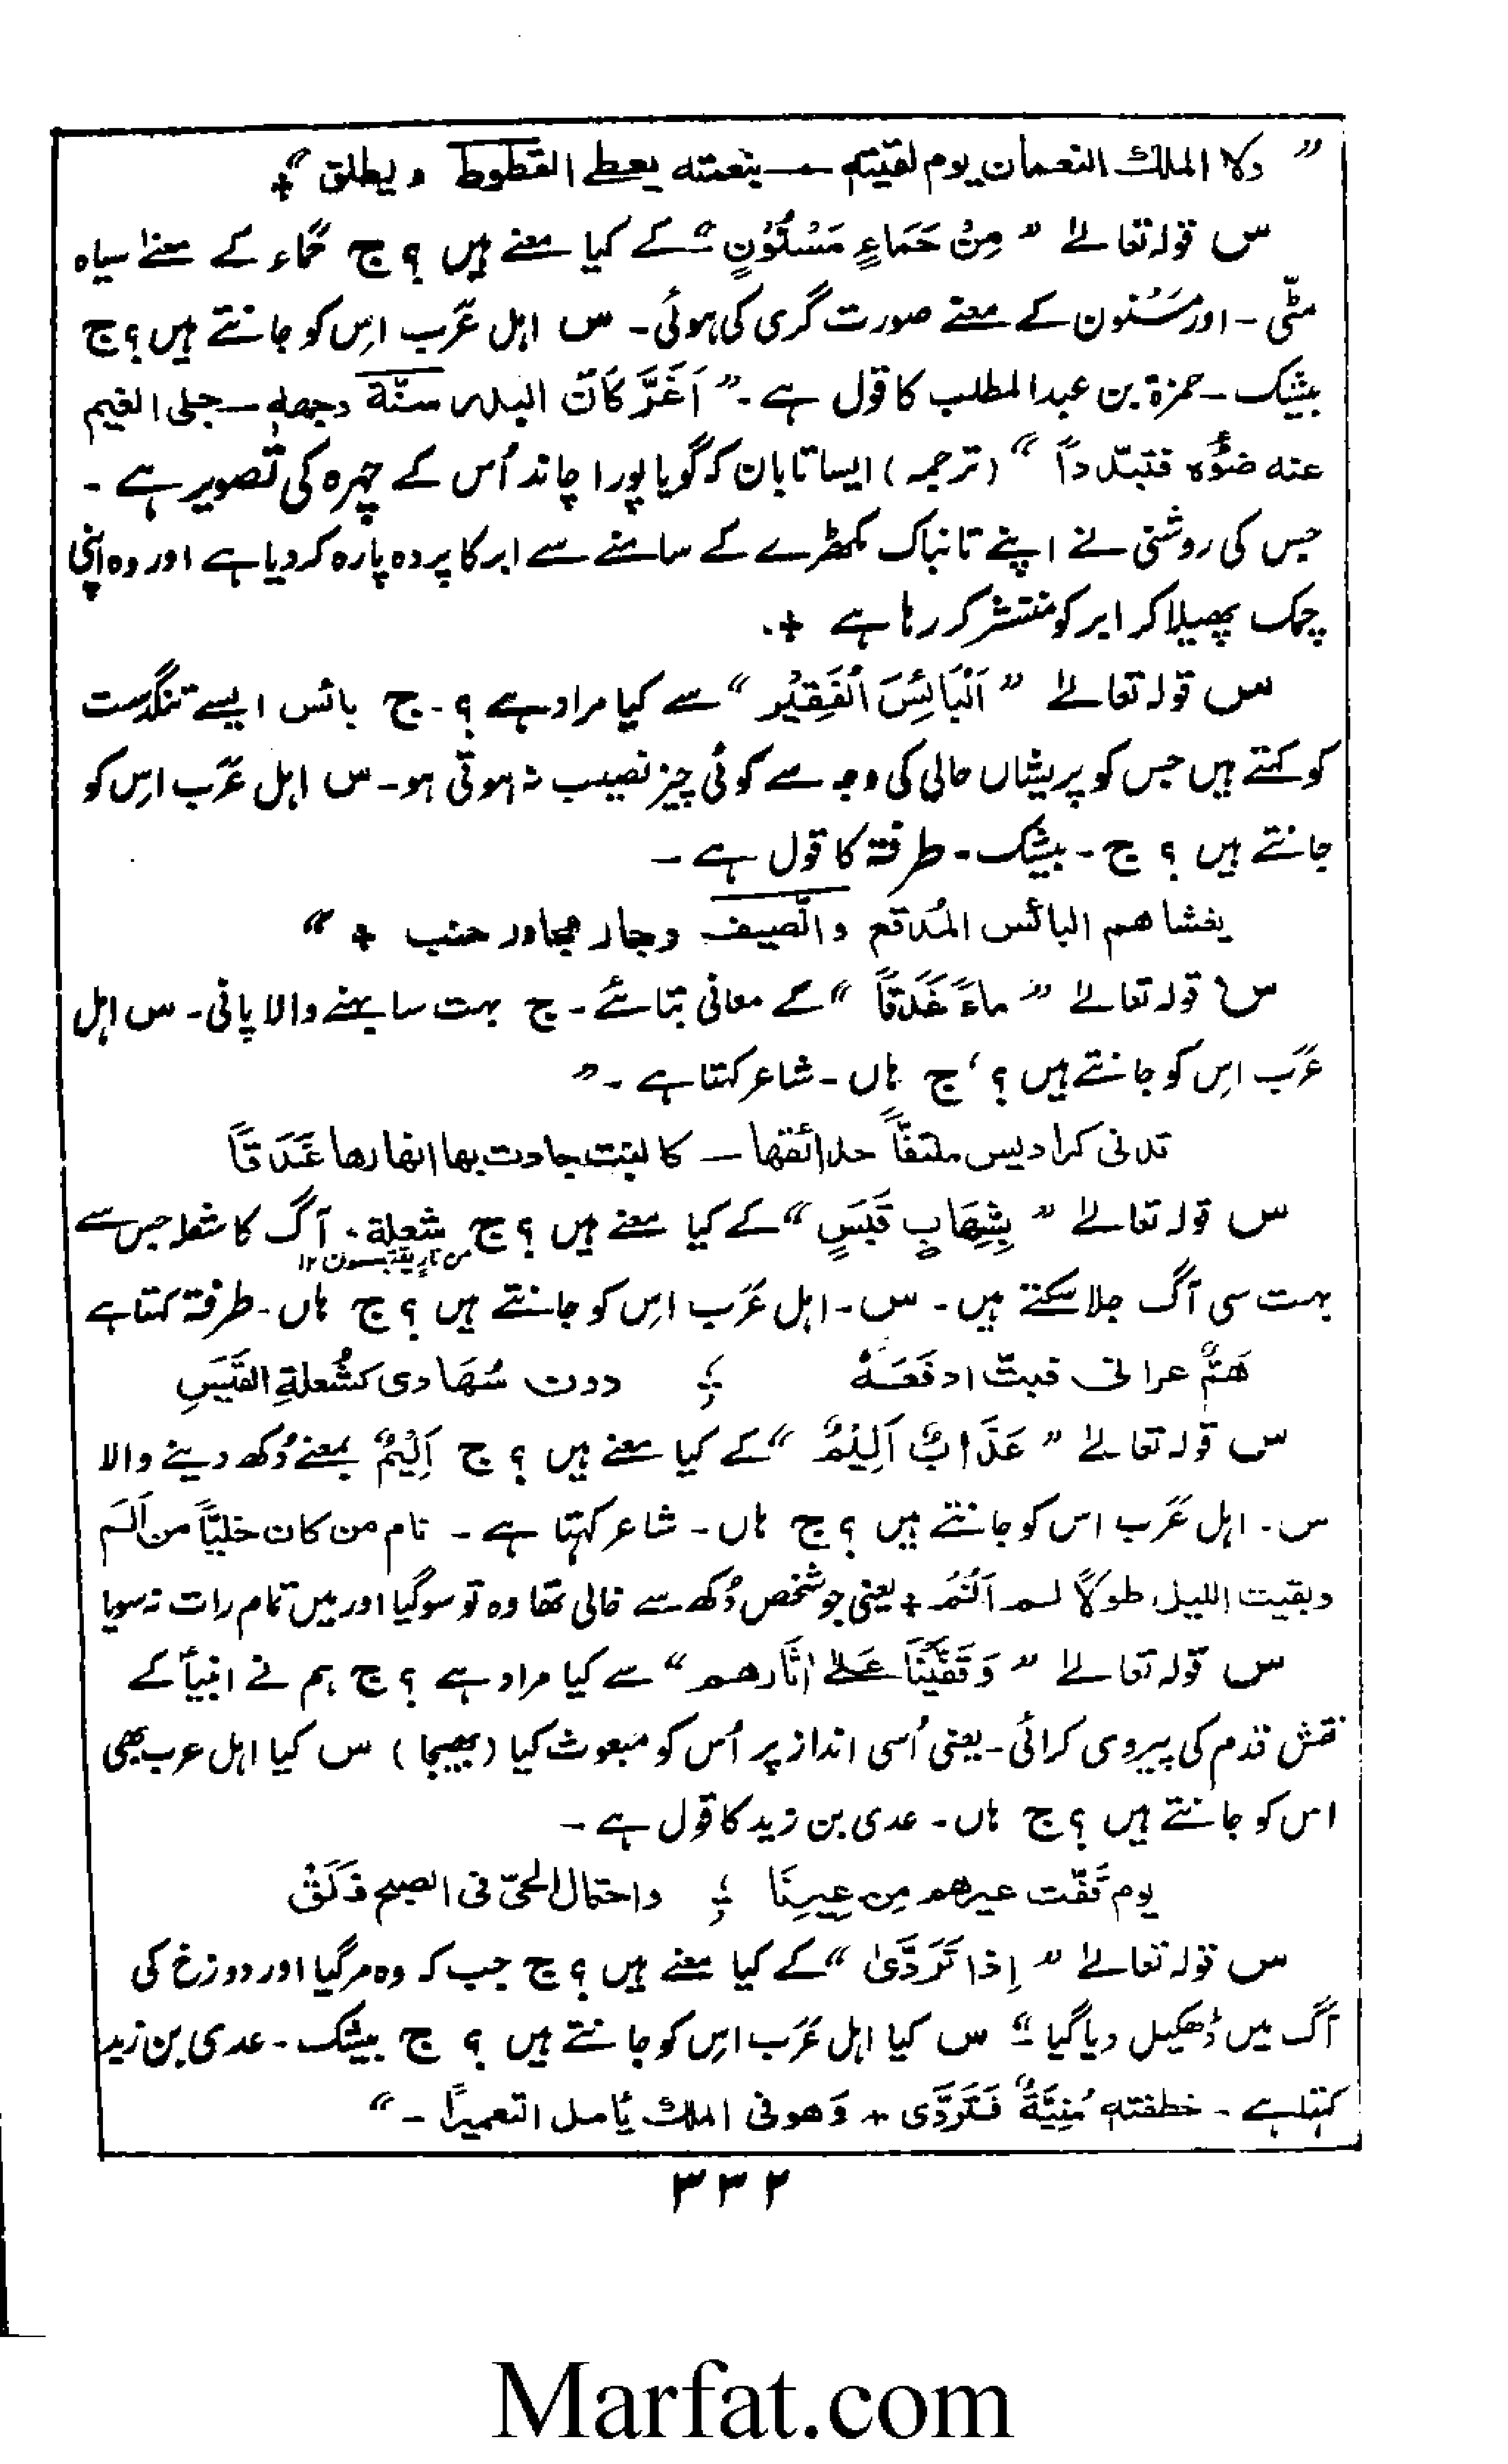 " ولا الملك النعمان یوم لقیته — بنعمته یعطی القطوط ویطلق " +
س قولہ تعالےٰ " مِنْ حَمَاءٍ مَسْنُوْنٍ " کے کیا معنے ہیں ؟ ج حَماء کے معنے سیاہ
مٹّی - اور مَسْنُون کے معنے صورت گری کی ہوئی - س اہل عَرَب اِس کو جانتے ہیں ؟ ج
بیشک - حمزۃ بن عبدالمطلب کا قول ہے - " اَغَرَّ کَاَنّ البدر سنّة وجهه — جلی الغیم
عنه ضؤُه فتبدّداً " ( ترجمہ ) ایسا تابان کہ گویا پورا چاند اُس کے چہرہ کی تصویر ہے -
جس کی روشنی نے اپنے تابناک مکھڑے کے سامنے سے ابر کا پردہ پارہ کردیا ہے اور وہ اپنی
چمک پھیلا کر ابر کو منتشر کر رہا ہے +.
س قولہ تعالےٰ " اَلْبَائِسَ الْفَقِیْر " سے کیا مراد ہے ؟ - ج بائس ایسے تنگدست
کو کہتے ہیں جس کو پریشاں حالی کی وجہ سے کوئی چیز نصیب نہ ہوتی ہو - س اہل عَرَب اِس کو
جانتے ہیں ؟ ج - بیشک - طرفۃ کا قول ہے -
یغشاهم البائس المُدقع والضیف وجار مجاور جنب + "
س قولہ تعالےٰ " ماءً غَدَقاً " کے معانی بتائے - ج بہت سا بہنے والا پانی - س اہل
عَرَب اِس کو جانتے ہیں ؟ ج ہاں - شاعر کہتا ہے - "
تدنی کرادیس ملتفّاً حدائقها — کالنبت جادت بها انهارها غَدَقاً
س قولہ تعالےٰ " بِشِهَابٍ قَبَسٍ " کے کیا معنے ہیں ؟ ج شعلة - آگ کا شعلہ جس سے
من نار یقتبسون ۱۲
بہت سی آگ جلا سکتے ہیں - س - اہل عَرَب اِس کو جانتے ہیں ؟ ج ہاں - طرفۃ کہتا ہے
هَمٌّ عرانی فبتّ ادفَعَهٗ ؛ دون سُهَادی کشُعلةِ القَبَسِ
س قولہ تعالےٰ " عَذَابٌ اَلِیْمٌ " کے کیا معنے ہیں ؟ ج اَلِیْمٌ بمعنے دُکھ دینے والا
س - اہل عَرَب اس کو جانتے ہیں ؟ ج ہاں - شاعر کہتا ہے - نام من کان خلیّاً من اَلَم
وبقیت اللیل طولاً لم اَنَمْ + یعنی جو شخص دُکھ سے خالی تھا وہ تو سوگیا اور میں تمام رات نہ سویا
س قولہ تعالےٰ " وَقَفَّیْنَا عَلےٰ اٰثَارِهم " سے کیا مراد ہے ؟ ج ہم نے انبیاؑ کے
نقش قدم کی پیروی کرائی - یعنی اُسی انداز پر اُس کو مبعوث کیا ( بھیجا ) س کیا اہل عرب بھی
اس کو جانتے ہیں ؟ ج ہاں - عدی بن زید کا قول ہے -
یوم قَفّت عیرهم مِن عِیرِنَا ؛ واحتمال الحیّ فی الصبح فَلَقْ
س قولہ تعالےٰ " اِذا تَرَدّٰی " کے کیا معنے ہیں ؟ ج جب کہ وہ مرگیا اور دوزخ کی
آگ میں ڈھکیل دیا گیا " س کیا اہل عَرَب اِس کو جانتے ہیں ؟ ج بیشک - عدی بن زید
کہتا ہے - خطفته مُنِیَّةٌ فَتَردّی + وَهو فی الملك یٔامل التعمیراً - "
۳۳۲
Marfat.com